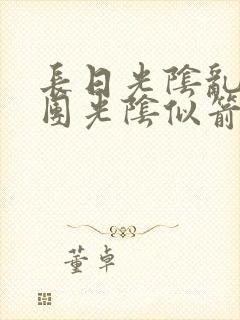 長日光陰亂
團光陰似箭
董卓